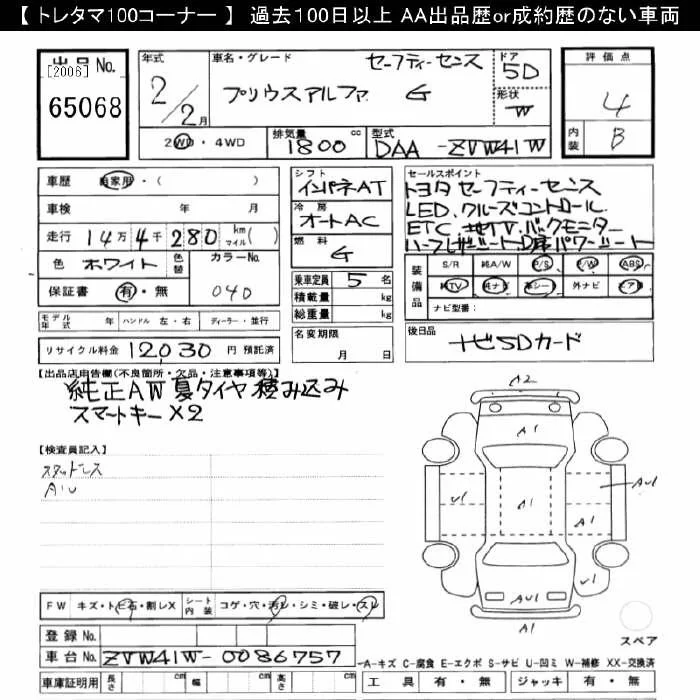 【 トレタマ100コーナー 】 過去100日以上 AA出品歴or成約歴のない車両
出品 No.
[2006]
65068
年式
2/2月
車名・グレード
セーフティーセンス
プリウスアルファ G
ドア
5D
形状
W
評価点
4
内装
B
2WD・4WD
排気量
1800 cc
型式
DAA-ZVW41W
車歴 自家用・( )
車検 年 月
走行 14万4千280 km マイル( )
色 ホワイト 色替 カラーNo.
040
保証書 有・無
モデル年式 年 ハンドル 左・右 ディーラー・並行
リサイクル料金 12,030 円 預託済
シフト
インパネAT
冷房
オートAC
燃料
G
乗車定員 5 名
積載量 kg
総重量 kg
名変期限
月 日
セールスポイント
トヨタ セーフティーセンス
LED.クルーズコントロール
ETC.地デジTV.バックモニター
ハーフレザーシートD席パワーシート
装備品
S/R 純A/W P/S P/W ABS
純TV 純ナビ 革シート 外ナビ エアB
ナビ型番:
後日品
ナビSDカード
【出品店申告欄(不良箇所・欠品・注意事項等)】
純正AW夏タイヤ積み込み
スマートキー×2
【検査員記入】
スタッドレス
A1U
A2
A1
U1
A1
AU1
A1
AU1
A1
A1
FW キズ・トビ石・割レX シート内装 コゲ・穴・汚レ・シミ・破レ・スレ
スペア
登録 No.
車台 No. ZVW41W-0086757
車庫証明用 長さ cm 幅 cm 高さ cm
A-キズ C-腐食 E-エクボ S-サビ U-凹ミ W-補修 XX-交換済
工具 有・無 ジャッキ 有・無